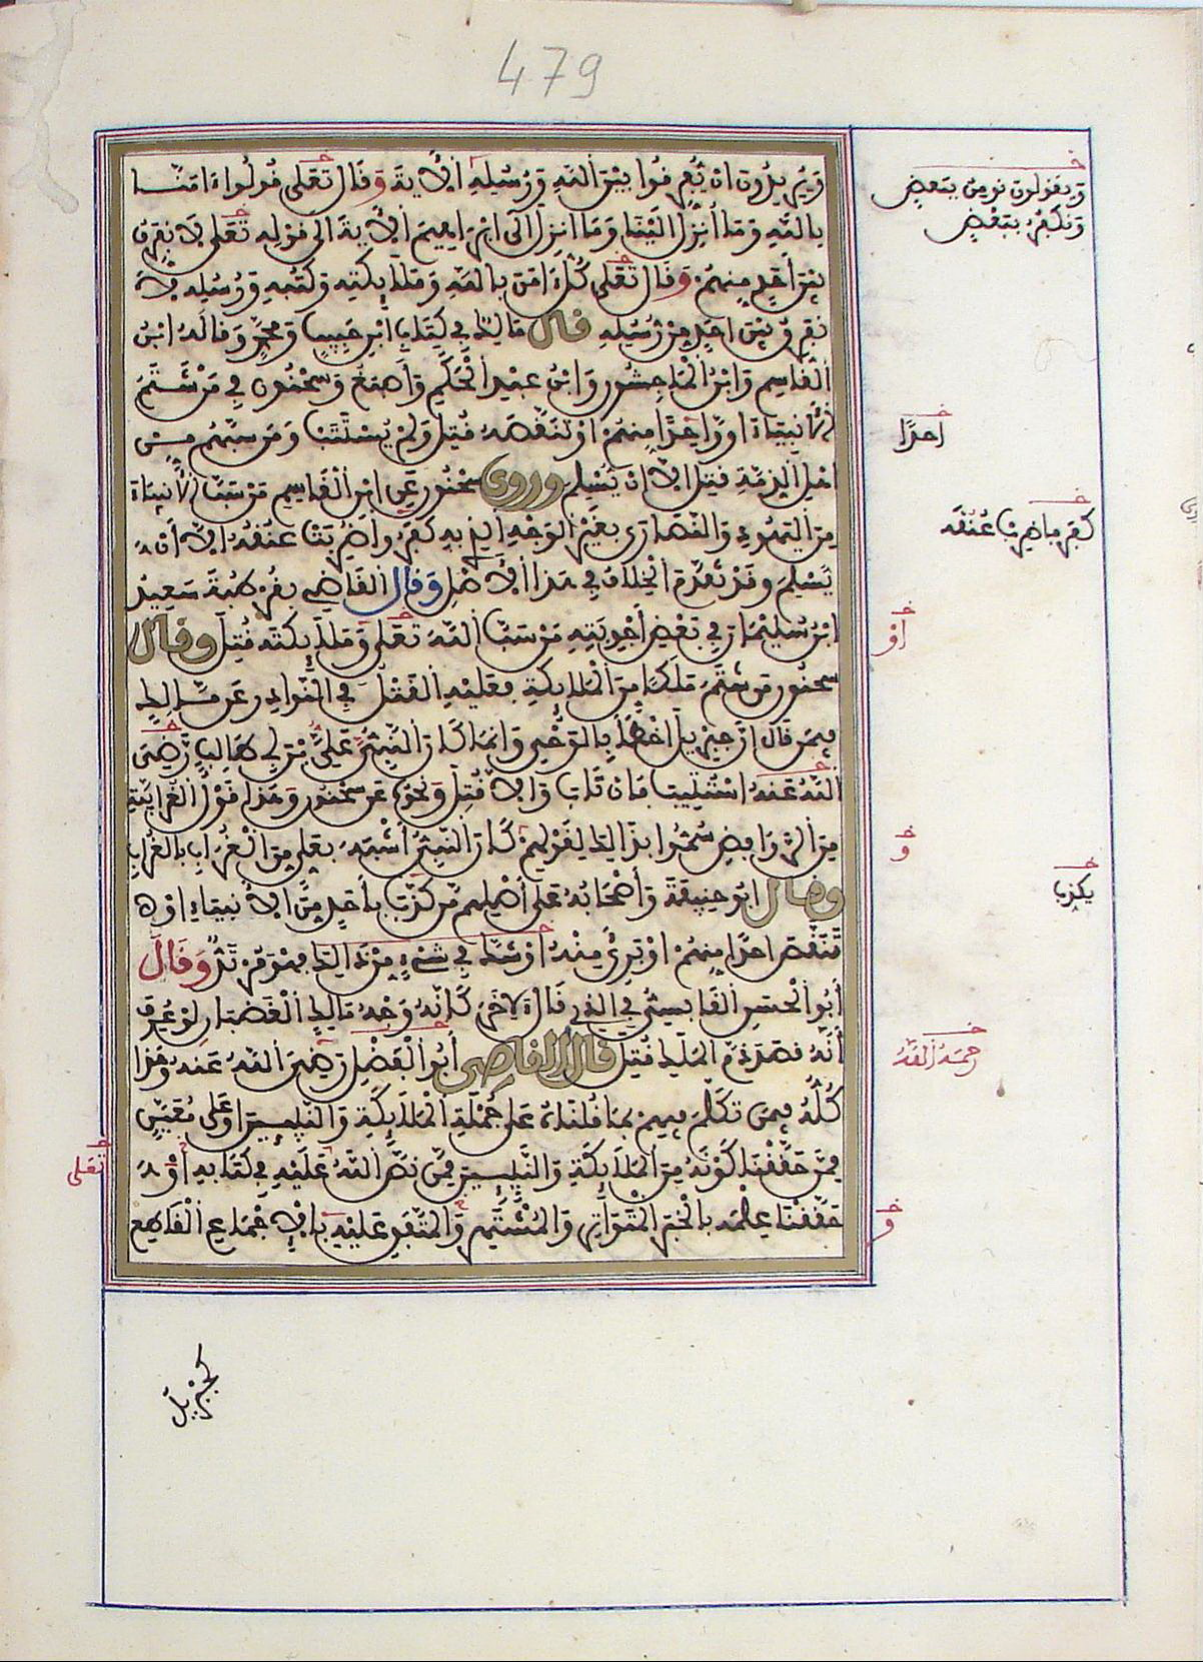 479
وَيُرِيدُونَ أَنْ يُّفَرِّقُوا بَيْنَ اللَّهِ وَرُسُلِهِ الآيَةَ وَقَالَ تَعَلَى قُولُوا ءَامَنَّا
بِاللَّهِ وَمَا أُنزِلَ إِلَيْنَا وَمَا أُنزِلَ إِلَى إِبْرَاهِيمَ الآيَةَ إِلَى قَوْلِهِ تَعَلَى لَا نُفَرِّقُ
بَيْنَ أَحَدٍ مِّنْهُمْ وَقَالَ تَعَلَى كُلٌّ ءَامَنَ بِاللَّهِ وَمَلَٰٓئِكَتِهِ وَكُتُبِهِ وَرُسُلِهِ لَا
نُفَرِّقُ بَيْنَ أَحَدٍ مِّن رُّسُلِهِ قَالَ مَالِكٌ فِي كِتَابِ ابْنِ حَبِيبٍ وَمُحَمَّدٍ وَقَالَهُ ابْنُ
الْقَاسِمِ وَابْنُ الْمَاجِشُونِ وَابْنُ عَبْدِ الْحَكَمِ وَأَصْبَغُ وَسَحْنُونٌ فِي مَنْ شَتَمَ
الأَنْبِيَاءَ أَوْ وَاحِدًا مِنْهُمْ أَوْ تَنَقَّصَهُ قُتِلَ وَلَمْ يُسْتَتَبْ وَمَن سَبَّهُم مِّنْ
أَهْلِ الذِّمَّةِ قُتِلَ إِلَّا أَنْ يُسْلِمَ وَرَوَى سَحْنُونٌ عَنِ ابْنِ الْقَاسِمِ مَن سَبَّ الأَنْبِيَاءَ
مِنَ الْيَهُودِ وَالنَّصَارَى بِغَيْرِ الْوَجْهِ الَّذِي بِهِ كَفَرُوا ضُرِبَتْ عُنُقُهُ إِلَّا أَنْ
يُّسْلِمَ وَقَدْ تَقَدَّمَ الْخِلَافُ فِي هَذَا الأَصْلِ وَقَالَ الْقَاضِي بِقُرْطُبَةَ سَعِيدُ
ابْنُ سُلَيْمَانَ فِي بَعْضِ أَجْوِبَتِهِ مَن سَبَّ اللَّهَ تَعَلَى وَمَلَٰٓئِكَتَهُ قُتِلَ وَقَالَ
سَحْنُونٌ مَن شَتَمَ مَلَكًا مِنَ الْمَلَائِكَةِ فَعَلَيْهِ الْقَتْلُ فِي النَّوَادِرِ عَن مَّالِكٍ
فِيمَن قَالَ إِنَّ جِبْرِيلَ أَخْطَأَ بِالْوَحْيِ وَإِنَّمَا كَانَ النَّبِيُّ عَلِيُّ بْنُ أَبِي طَالِبٍ رَضِيَ
اللَّهُ عَنْهُ اسْتُتِيبَ فَإِن تَابَ وَإِلَّا قُتِلَ وَنَحْوُهُ عَن سَحْنُونٍ وَهَذَا قَوْلُ الْغُرَابِيَّةِ
مِنَ الرَّوَافِضِ سُمُّوا بِذَالِكَ لِقَوْلِهِمْ كَانَ النَّبِيُّ أَشْبَهَ بِعَلِيٍّ مِنَ الْغُرَابِ بِالْغُرَابِ
وَقَالَ أَبُو حَنِيفَةَ وَأَصْحَابُهُ عَلَى أَصْلِهِم مَّن كَذَّبَ بِأَحَدٍ مِّنَ الأَنْبِيَاءِ أَوْ
تَنَقَّصَ أَحَدًا مِنْهُمْ أَوْ بَرِئَ مِنْهُ أَوْ شَكَّ فِي شَيْءٍ مِن ذَالِكَ فَهُوَ مُرْتَدٌّ وَقَالَ
أَبُو الْحَسَنِ الْقَابِسِيُّ فِي الَّذِي قَالَ لِآخَرَ كَأَنَّهُ وَجْهُ مَالِكٍ الْغَضْبَانِ لَوْ عُرِفَ
أَنَّهُ قَصَدَ ذَمَّ الْمَلَكِ قُتِلَ قَالَ الْقَاضِي أَبُو الْفَضْلِ رَضِيَ اللَّهُ عَنْهُ وَهَذَا
كُلُّهُ فِيمَن تَكَلَّمَ فِيهِمْ بِمَا قُلْنَاهُ عَلَى جُمْلَةِ الْمَلَائِكَةِ وَالنَّبِيئِينَ أَوْ عَلَى مُعَيَّنٍ
مِّمَّن حَقَّقْنَا كَوْنَهُ مِنَ الْمَلَائِكَةِ وَالنَّبِيئِينَ مِمَّن نَصَّ اللَّهُ عَلَيْهِ فِي كِتَابِهِ أَوْ
حَقَّقْنَا عِلْمَهُ بِالْخَبَرِ الْمُتَوَاتِرِ وَالْمُشْتَهِرِ وَالْمُتَّفَقِ عَلَيْهِ بِالإِجْمَاعِ الْقَاطِعِ
كَجِبْرِيلَ
خ
وَيَقُولُونَ نُومِنُ بِبَعْضٍ
وَنَكْفُرُ بِبَعْضٍ
خ
أَحَدًا
خ
كَفَرَ فَاضْرِبْ عُنُقَهُ
خ
أَوْ
خ
وَ
خ
يُكَذِّبُ
خ
رَحِمَهُ اللَّهُ
خ
تَعَلَى
خ
وَ